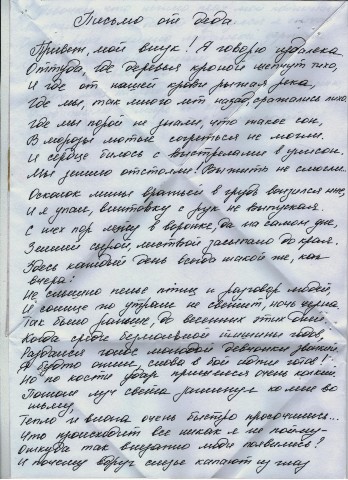 Письмо от деда.
Привет, мой внук! Я говорю издалека
Оттуда, где деревья кроной шепчут тихо,
И где от нашей крови рыжая река,
Где мы, так много лет назад, сражались лихо.
Где мы порой не знали, что такое сон,
В морозы лютые согреться не могли.
И сердце билось с выстрелами в унисон.
Мы землю отстояли. Выжить не смогли.
Осколок мины вражьей в грудь вонзился мне,
И я упал, винтовку с рук не выпуская.
С тех пор лежу в воронке, да на самом дне,
Землей сырой, листвой засыпано до края.
Здесь каждый день всегда такой же, как
вчера:
Не слышно пенье птиц и разговор людей,
И солнце по утрам не светит, ночь черна.
Так было раньше, до весенних этих дней.
Когда среди безмолвной тишины годов,
Раздался голос молодой девчонки звонкий.
Я будто ожил, снова в бой идти готов!
Но по кости удар пришелся очень ловкий.
Потом луч света заглянул ко мне во
тьму,
Тепло и влага очень быстро просочились...
Что происходит все никак я не пойму-
Откуда так внезапно люди появились?
И почему вдруг слезы капают из глаз